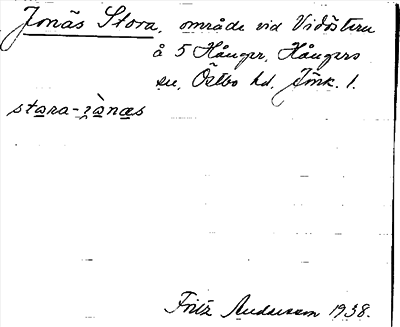 Jonäs Stora, område vid Vidöstern
å 5 Hånger, Hångers
sn, Östbo hd, Jönk. l.
stora-jònæs
Fritz Andersson 1938.